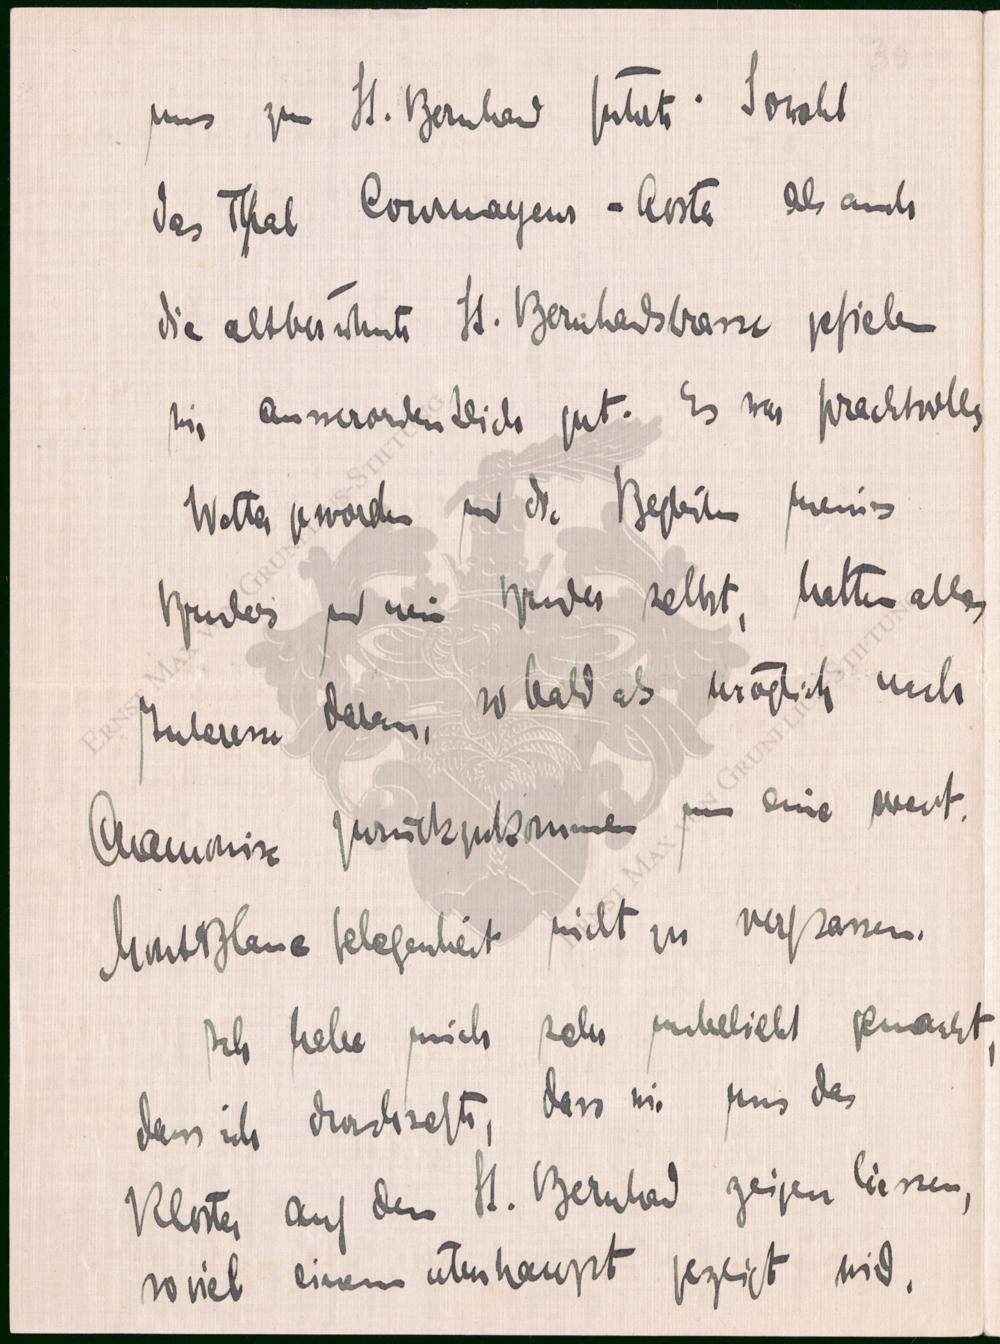 uns zum St. Bernhard führte. Sowohl
das Thal Courmayeur-Aosta als auch
die altberühmte St. Bernhardstrasse gefielen
mir ausserordentlich gut. Es war prachtvolles
Wetter geworden und die Begleiter meines
Bruders und mein Bruder selbst, hatten alles
Interesse daran, so bald als möglich nach
Chamonix zurückzukommen um eine event.
Mont Blanc Gelegenheit nicht zu verpassen.
Ich habe mich sehr unbeliebt gemacht,
dass ich durchsetzte, dass wir uns das
Kloster auf dem St. Bernhard zeigen liessen,
soviel einem überhaupt gezeigt wird.
ERNST MAX VON GRUNELIUS-STIFTUNG
ERNST MAX VON GRUNELIUS-STIFTUNG